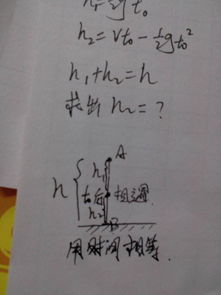 h₁=½gt₀²
h₂=Vt₀-½gt₀²
h₁+h₂=h
求出 h₂=?
A
h₁
h
t₀后
相遇
h₂
B
用时间相等.